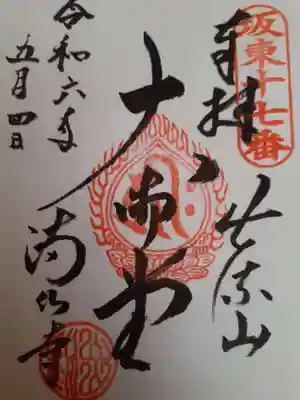 坂東十七番
奉拝
出流山
大御堂
満願寺
令和六年
五月四日